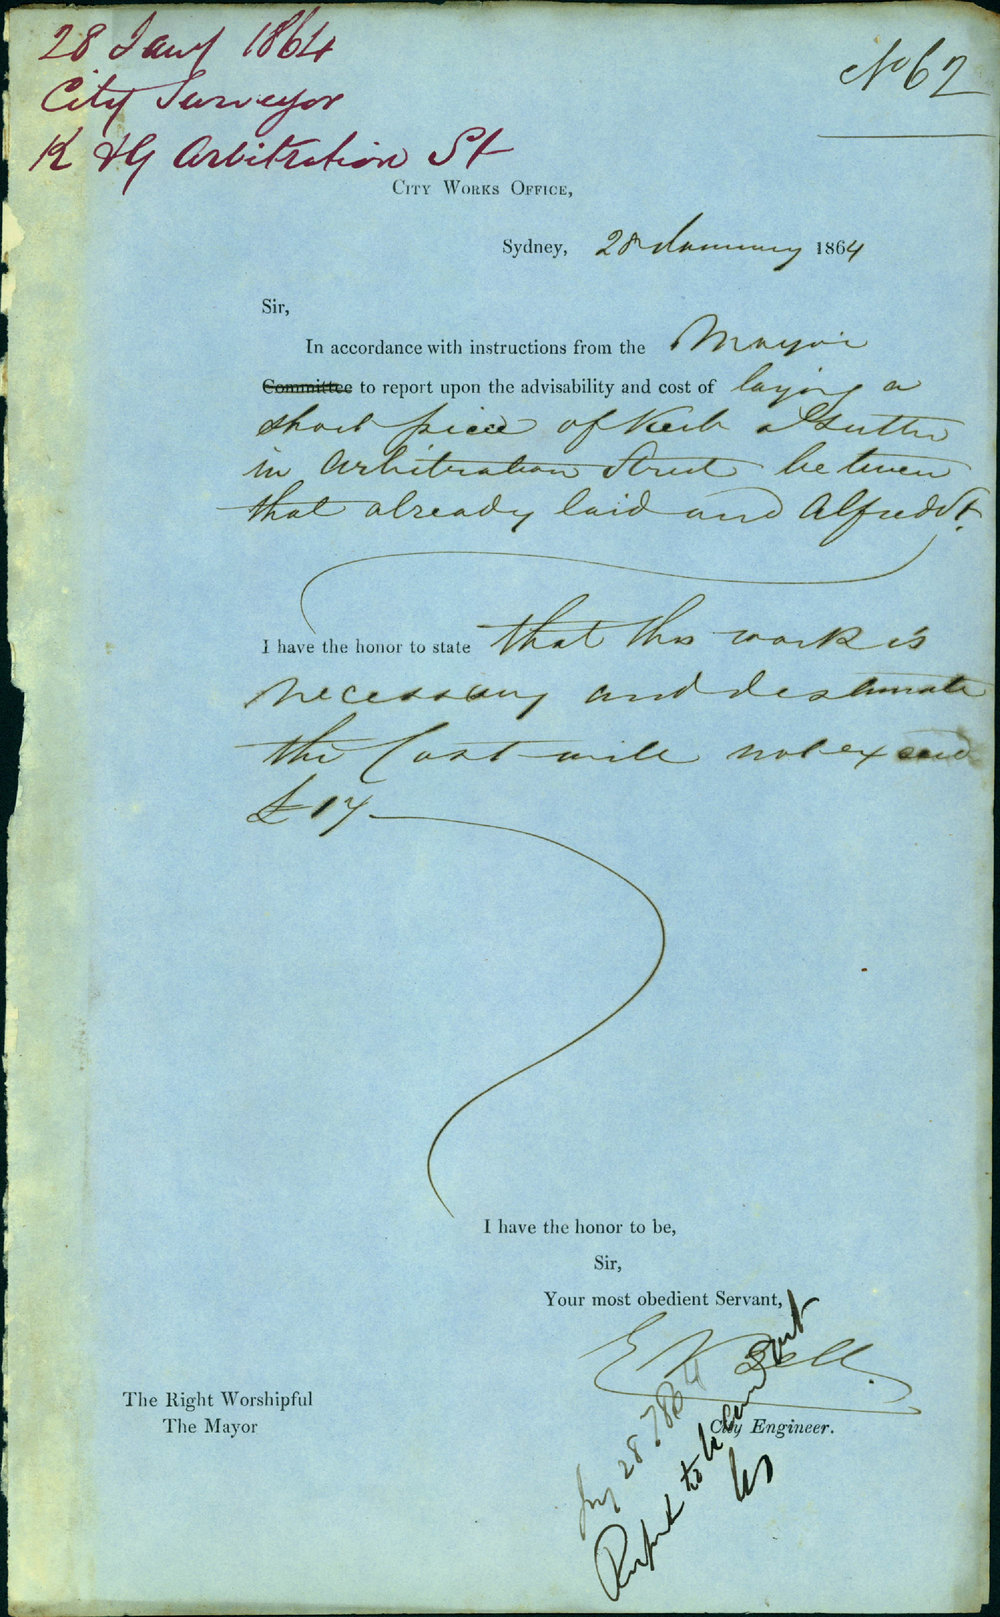 28 Jany 1864
City Surveyor
K & G Arbitration St
No 62
CITY WORKS OFFICE,
Sydney, 28 January 1864
Sir,
In accordance with instructions from the Mayor
Committee to report upon the advisability and cost of laying a
short piece of Kerb & Gutter
in Arbitration Street between
that already laid and Alfred St.
I have the honor to state that this work is
necessary and I estimate
the Cost will not exceed
£17
I have the honor to be,
Sir,
Your most obedient Servant,
E Bell
City Engineer.
The Right Worshipful
The Mayor
Jany 28 1864
Report to